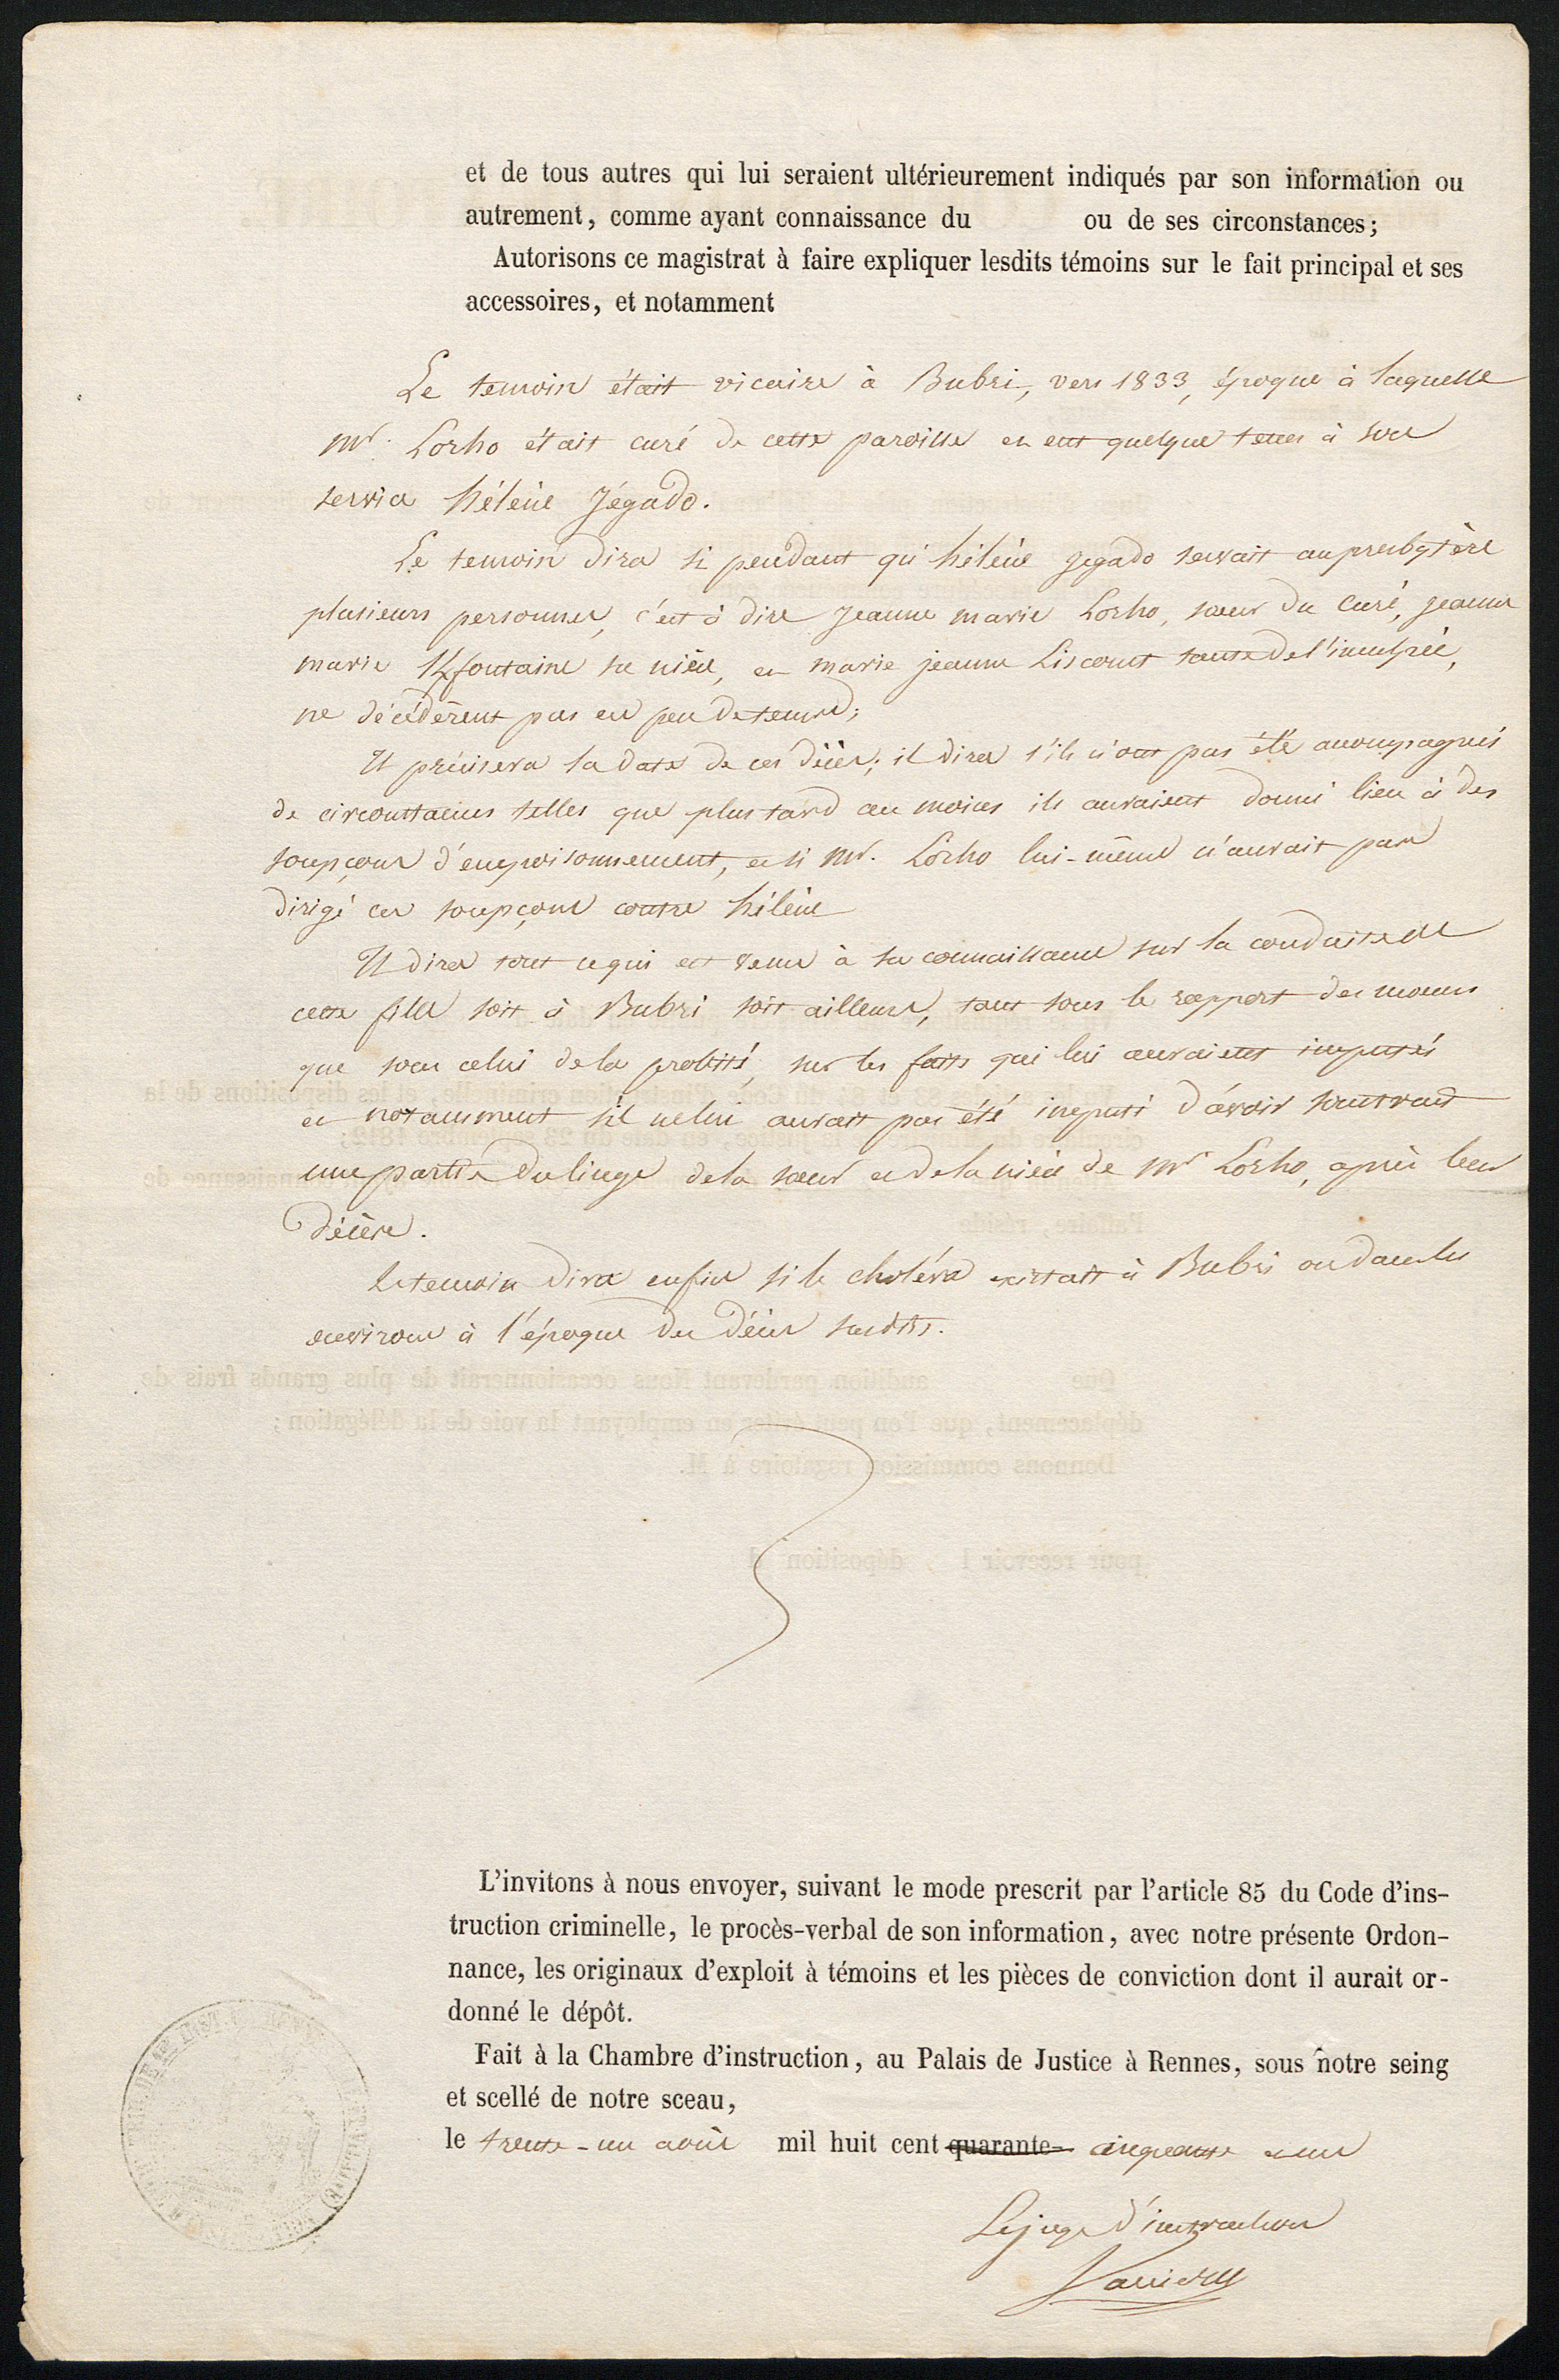 et de tous autres qui lui seraient ultérieurement indiqués par son information ou
autrement, comme ayant connaissance du ou de ses circonstances;
Autorisons ce magistrat à faire expliquer lesdits témoins sur le fait principal et ses
accessoires, et notamment
Le temoin était vicaire à Bubri, vers 1833, époque à laquelle
Mr. Lorho était curé de cette paroisse et eut quelque tems à son
service hélène Jégado.
Le temoin dira si pendant qu'hélène Jegado servait au presbytère
plusieurs personnes, c'est à dire Jeanne marie Lorho, sœur du curé, jeanne
marie Kffontaine sa nièce, et marie jeanne Liscouet tante de l'inculpée,
ne décédèrent pas en peu de tems;
Il précisera la date de ces décès; il dira s'ils n'ont pas été accompagnés
de circonstances telles que plus tard au moins ils auraient donné lieu à des
soupçons d'empoisonnement, et si Mr. Lorho lui-même n'aurait pas
dirigé ces soupçons contre hélène
Il dira tout ce qui est venu à sa connaissance sur la conduite de
cette fille soit à Bubri soit ailleurs, tant sous le rapport des moeurs
que sous celui de la probité, sur les faits qui lui auraient imputés
et notamment s'il ne lui aurait pas été imputé d'avoir soustrait
une partie du linge de la sœur et de la nièce de Mr Lorho, après leur
décès.
Le temoin dira enfin si le choléra existait à Bubri ou dans les
environs à l'époque des décès susdits.
L'invitons à nous envoyer, suivant le mode prescrit par l'article 85 du Code d'ins-
truction criminelle, le procès-verbal de son information, avec notre présente Ordon-
nance, les originaux d'exploit à témoins et les pièces de conviction dont il aurait or-
donné le dépôt.
Fait à la Chambre d'instruction, au Palais de Justice à Rennes, sous notre seing
et scellé de notre sceau,
le trente-un août mil huit cent quarante- cinquante et un
Le juge d'instruction